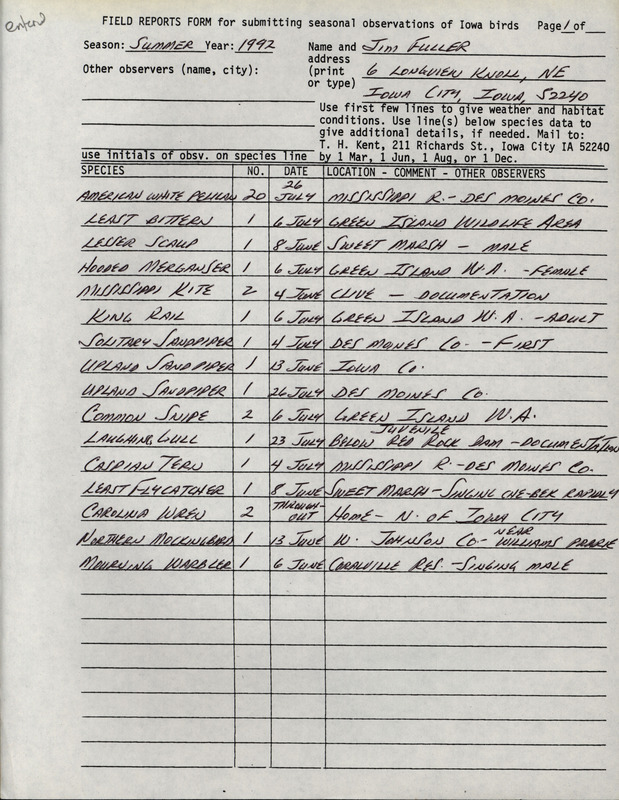 entered
FIELD REPORTS FORM for submitting seasonal observations of Iowa birds Page 1 of
Season: SUMMER Year: 1992 Name and JIM FULLER
address
Other observers (name, city): (print 6 LONGVIEW KNOLL, NE
or type) IOWA CITY, IOWA, 52240
Use first few lines to give weather and habitat
conditions. Use line(s) below species data to
give additional details, if needed. Mail to:
T. H. Kent, 211 Richards St., Iowa City IA 52240
use initials of obsv. on species line by 1 Mar, 1 Jun, 1 Aug, or 1 Dec.
SPECIES NO. DATE LOCATION - COMMENT - OTHER OBSERVERS
AMERICAN WHITE PELICAN 20 26 JULY MISSISSIPPI R. - DES MOINES CO.
LEAST BITTERN 1 6 JULY GREEN ISLAND WILDLIFE AREA
LESSER SCAUP 1 8 JUNE SWEET MARSH - MALE
HOODED MERGANSER 1 6 JULY GREEN ISLAND W.A. - FEMALE
MISSISSIPPI KITE 2 4 JUNE CLIVE - DOCUMENTATION
KING RAIL 1 6 JULY GREEN ISLAND W.A. - ADULT
SOLITARY SANDPIPER 1 4 JULY DES MOINES CO. - FIRST
UPLAND SANDPIPER 1 13 JUNE IOWA CO.
UPLAND SANDPIPER 1 26 JULY DES MOINES CO.
COMMON SNIPE 2 6 JULY GREEN ISLAND W.A.
JUVENILE
LAUGHING GULL 1 23 JULY BELOW RED ROCK DAM - DOCUMENTATION
CASPIAN TERN 1 4 JULY MISSISSIPPI R. - DES MOINES CO.
LEAST FLYCATCHER 1 8 JUNE SWEET MARSH - SINGING CHE-BEK RAPIDLY
CAROLINA WREN 2 THROUGH-OUT HOME - N. OF IOWA CITY
NORTHERN MOCKINGBIRD 1 13 JUNE W. JOHNSON CO - NEAR WILLIAMS PRARIE
MOURNING WARBLER 1 6 JUNE CORALVILLE RES. - SINGING MALE